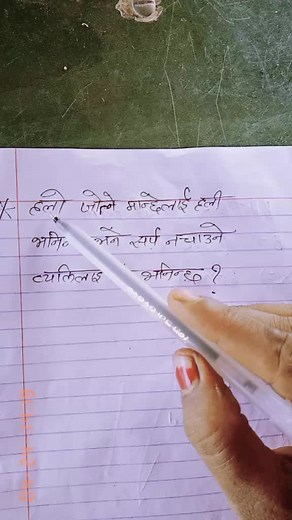 हलो जोत्ने मान्छेलाई हली
भने सर्प नचाउने
व्यक्तिलाइ भनिन्छ ?